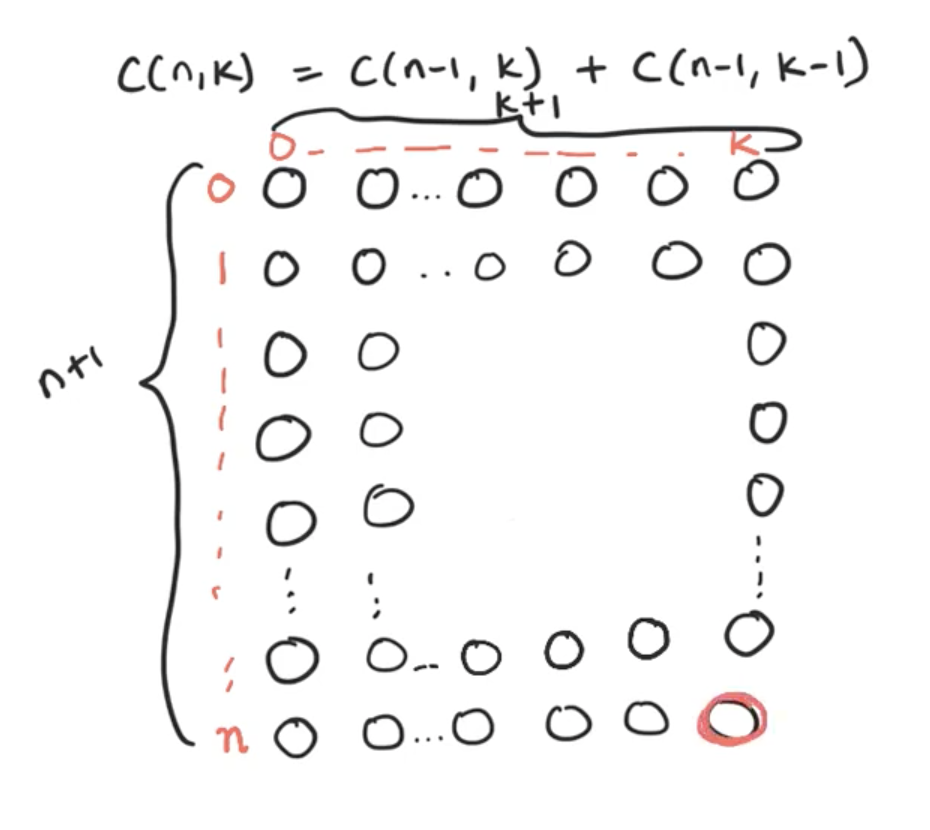 C(n,k) = C(n-1, k) + C(n-1, k-1)
k+1
0 k
0
1
n+1
n